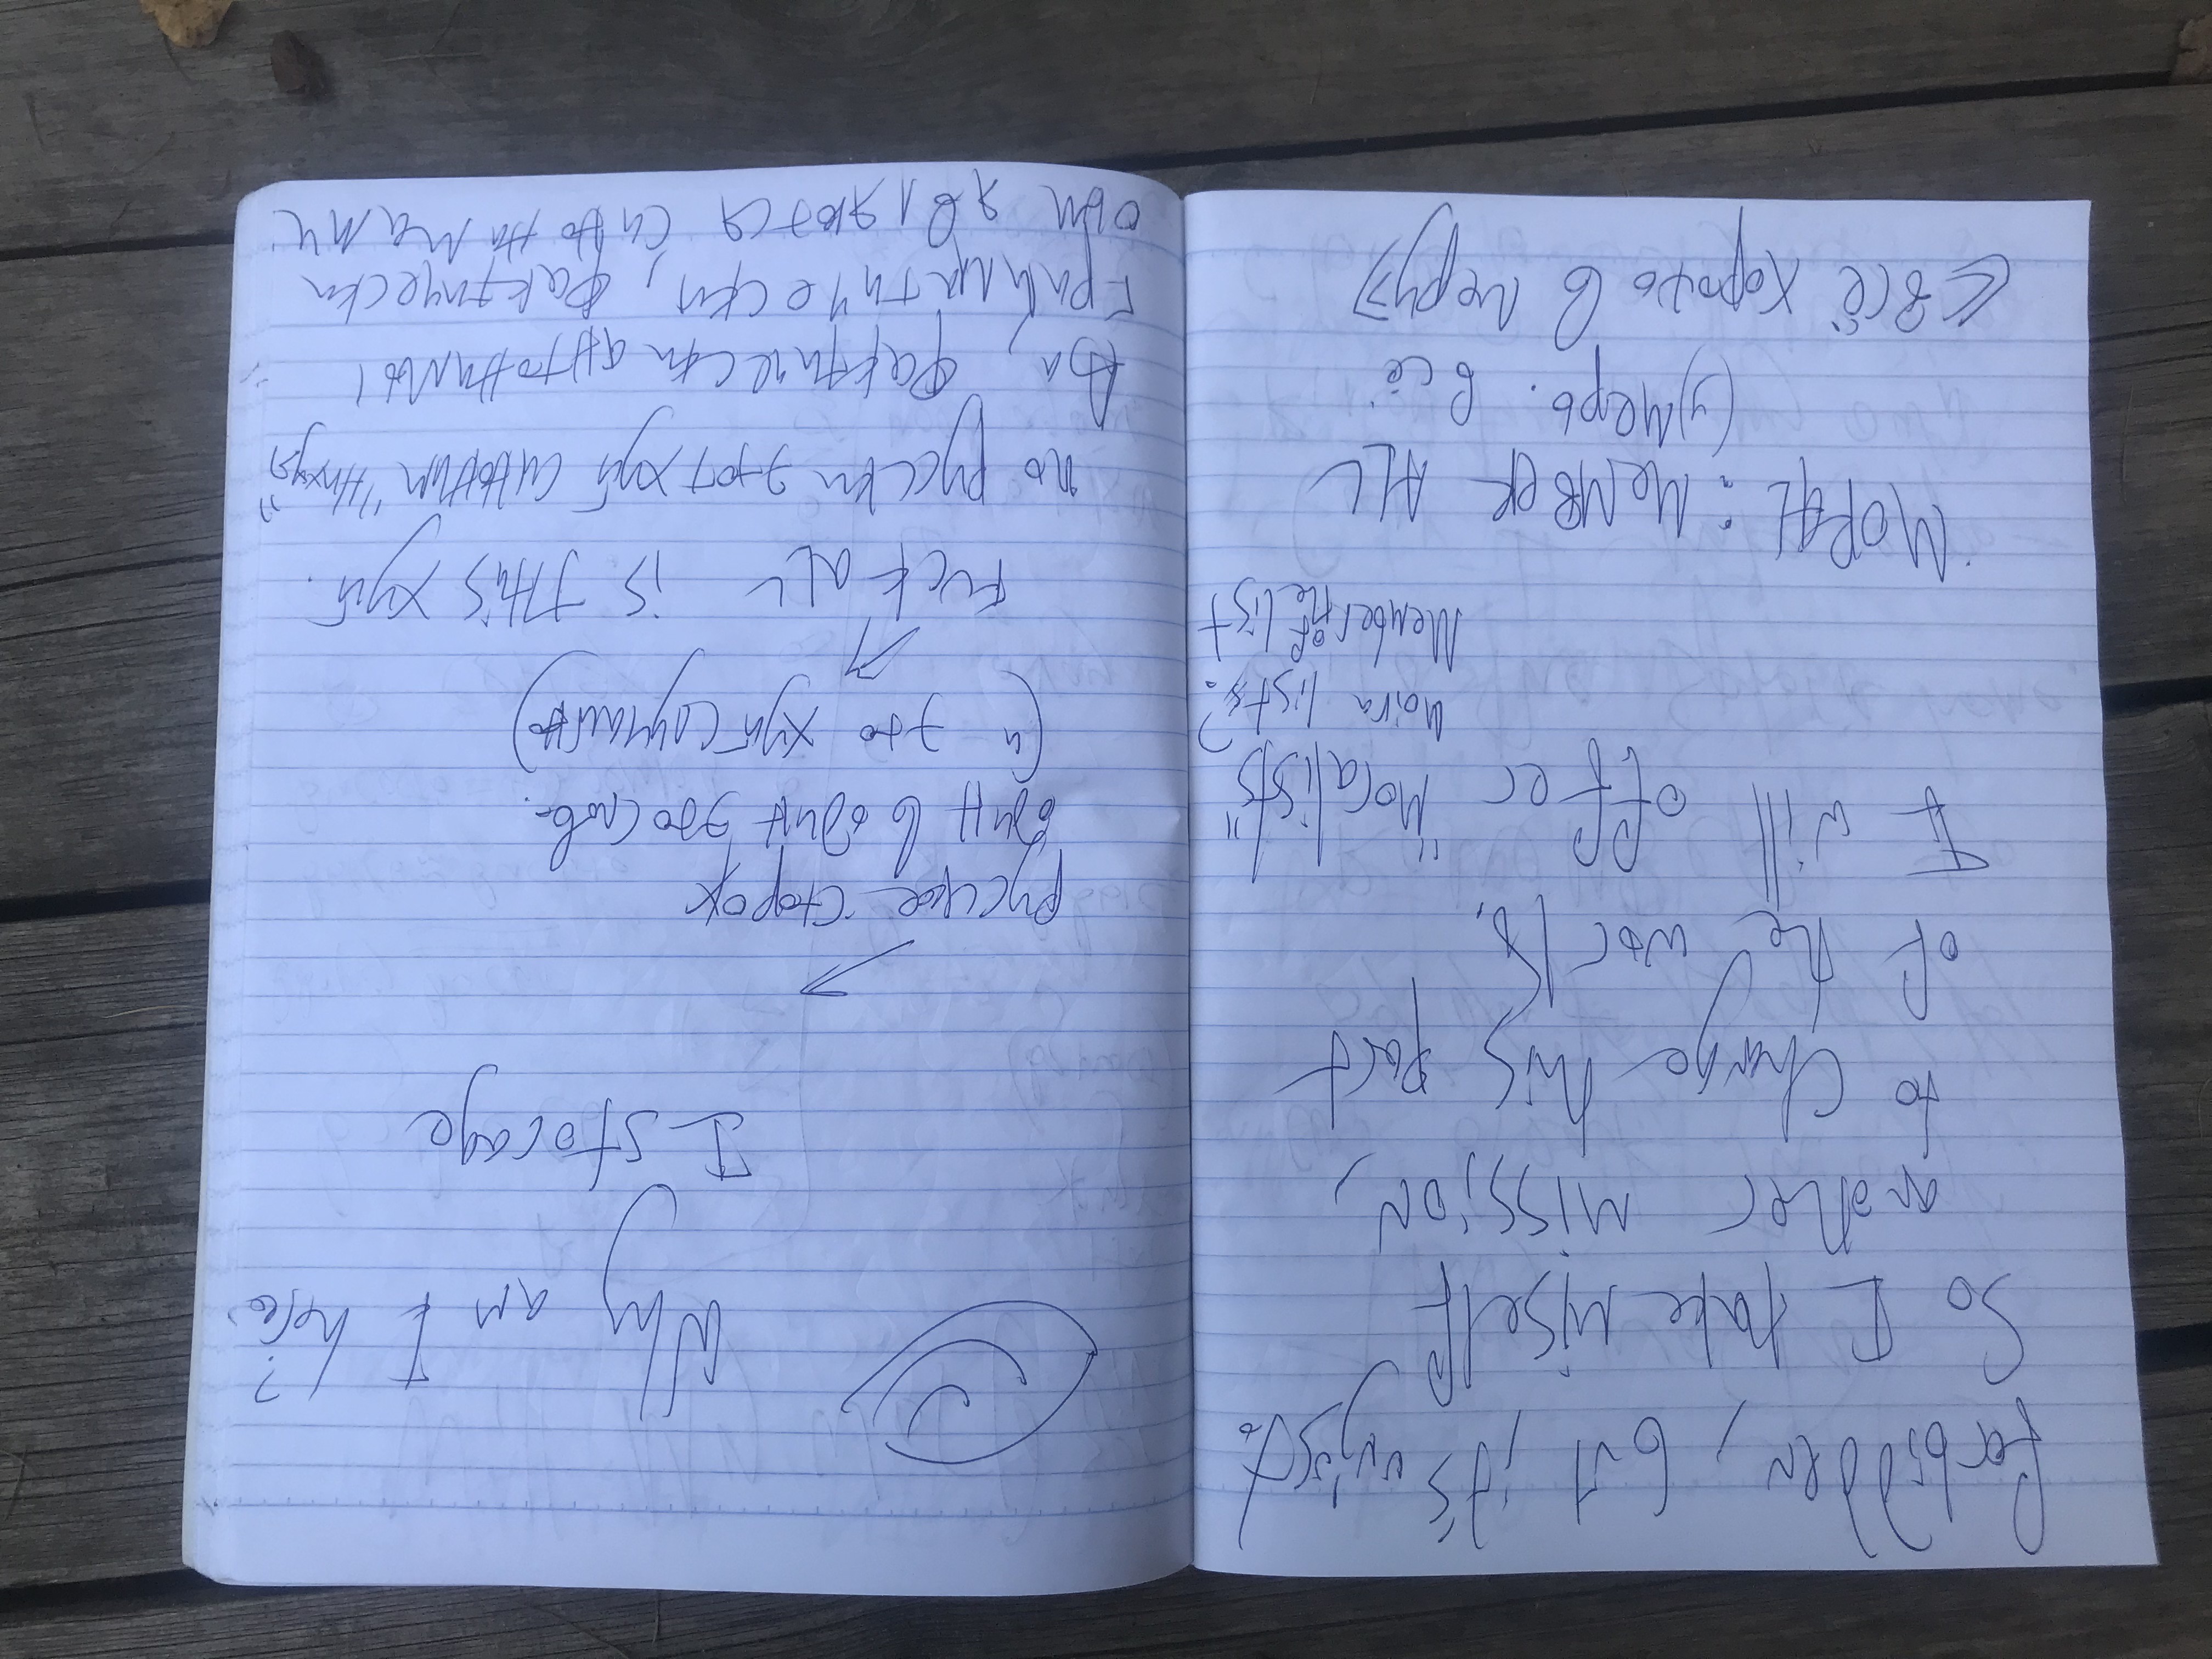 forbidden, but it's unjust.
So I take miself
another mission,
to change this part
of the world.
I will offer "Moralists"
Moira lists?
Member of the list
MOPAL: MeMBeR ALL
(у)мерь. всё
«всё хорошо в меру»
Why am I here?
I storage
русское сторож
один в один это слов.
(и это хуй случайно)
FUCK aLL is THis хуй.
по русски этот хуй синоним "Нихуя"
Да, фактически антонимы
грамматически, фактически
они являются синонимами